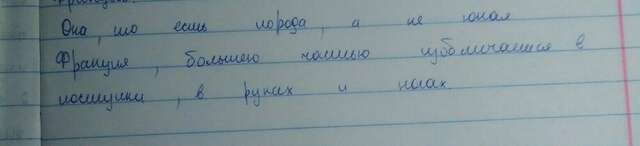 Она, то есть порода, а не юная
Франция, большею частью изобличается в
поступки, в руках и ногах.